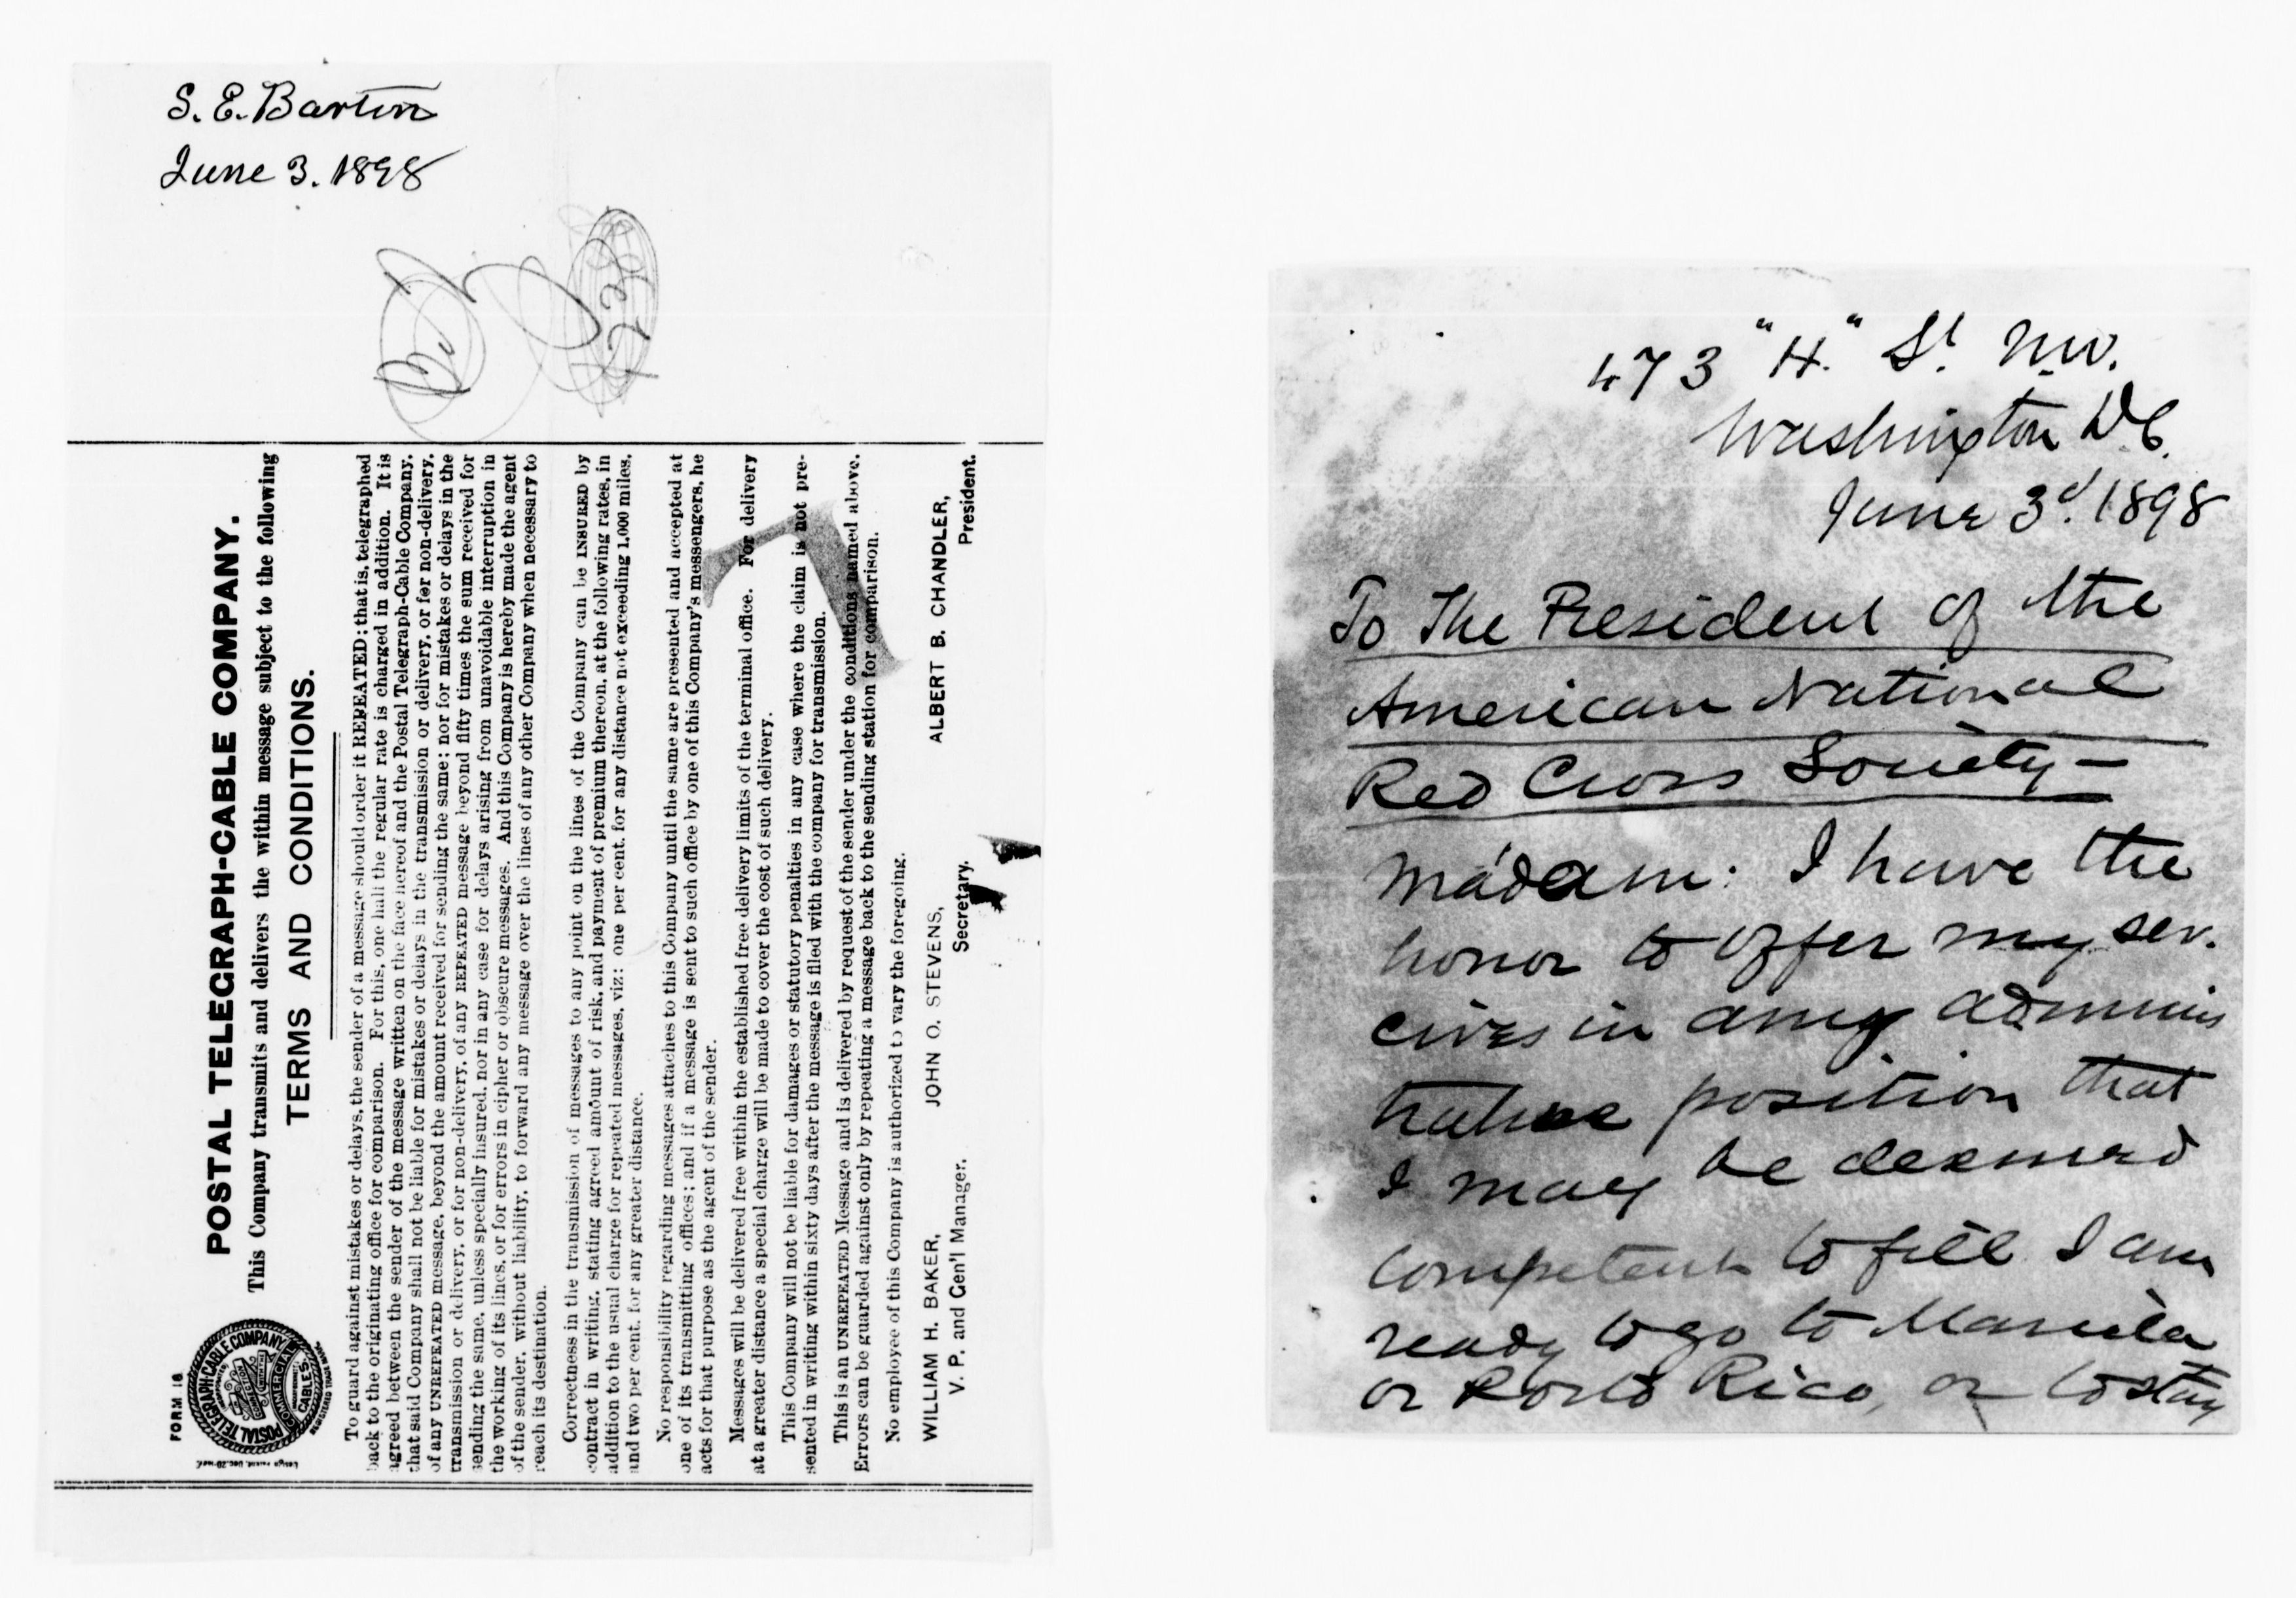 S. E. Barton
June 3. 1898
FORM 16
POSTAL TELEGRAPH-CABLE COMPANY
COMMERCIAL CABLES
REGISTERED TRADE MARK.
POSTAL TELEGRAPH-CABLE COMPANY.
This Company transmits and delivers the within message subject to the following
TERMS AND CONDITIONS.
To guard against mistakes or delays, the sender of a message should order it REPEATED; that is, telegraphed
back to the originating office for comparison. For this, one half the regular rate is charged in addition. It is
agreed between the sender of the message written on the face hereof and the Postal Telegraph-Cable Company,
that said Company shall not be liable for mistakes or delays in the transmission or delivery, or for non-delivery,
of any UNREPEATED message, beyond the amount received for sending the same; nor for mistakes or delays in the
transmission or delivery, or for non-delivery, of any REPEATED message beyond fifty times the sum received for
sending the same, unless specially insured, nor in any case for delays arising from unavoidable interruption in
the working of its lines, or for errors in cipher or obscure messages. And this Company is hereby made the agent
of the sender, without liability, to forward any message over the lines of any other Company when necessary to
reach its destination.
Correctness in the transmission of messages to any point on the lines of the Company can be INSURED by
contract in writing, stating agreed amount of risk, and payment of premium thereon, at the following rates, in
addition to the usual charge for repeated messages, viz: one per cent. for any distance not exceeding 1,000 miles,
and two per cent. for any greater distance.
No responsibility regarding messages attaches to this Company until the same are presented and accepted at
one of its transmitting offices; and if a message is sent to such office by one of this Company's messengers, he
acts for that purpose as the agent of the sender.
Messages will be delivered free within the established free delivery limits of the terminal office. For delivery
at a greater distance a special charge will be made to cover the cost of such delivery.
This Company will not be liable for damages or statutory penalties in any case where the claim is not pre-
sented in writing within sixty days after the message is filed with the company for transmission.
This is an UNREPEATED Message and is delivered by request of the sender under the conditions named above.
Errors can be guarded against only by repeating a message back to the sending station for comparison.
No employee of this Company is authorized to vary the foregoing.
WILLIAM H. BAKER, JOHN O. STEVENS, ALBERT B. CHANDLER,
V. P. and Gen'l Manager. Secretary. President.
473 "H." St. N.W.
Washington D.C.
June 3d. 1898
To The President of the
American National
Red Cross Society—
Madam: I have the
honor to offer my ser.
vices in any adminis
trative position that
I may be deemed
competent to fill I am
ready to go to Manila
or Porto Rico, or to stay